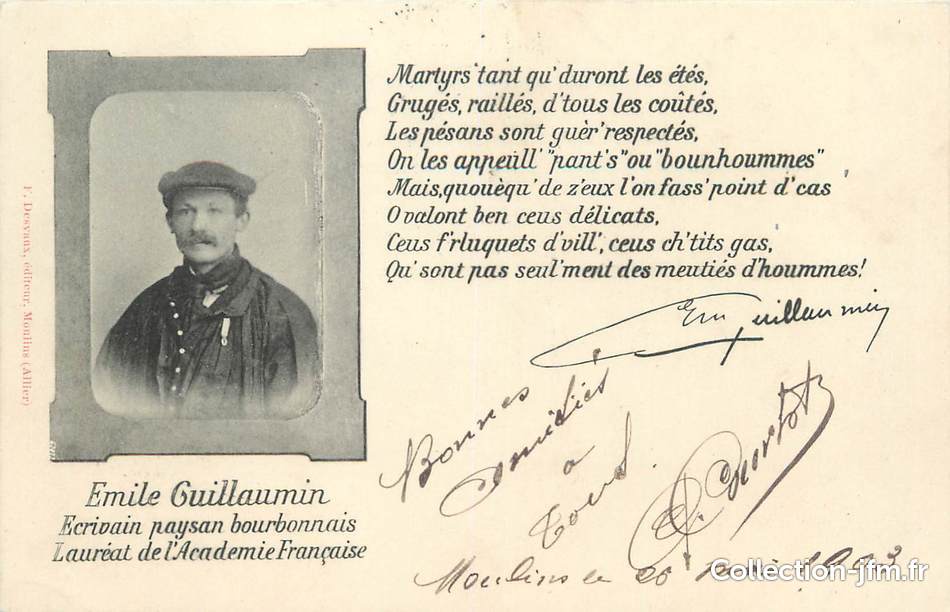 Martyrs tant qu'duront les étés,
Grugés, raillés, d'tous les coûtés,
Les pésans sont guèr'respectés,
On les appeüll' "pant's" ou "bounhoummes"
Mais, quouèqu'de z'eux l'on fass' point d'cas
O valont ben ceus délicats,
Ceus f'rluquets d'vill', ceus ch'tits gas,
Qu'sont pas seul'ment des meutiés d'hoummes!
Em Guillaumin
F. Desvaux, éditeur, Moulins (Allier)
Emile Guillaumin
Ecrivain paysan bourbonnais
Lauréat de l'Academie Française
Bonnes
amitiés
a
tous.
Moulins le 26 1903
Collection-jfm.fr